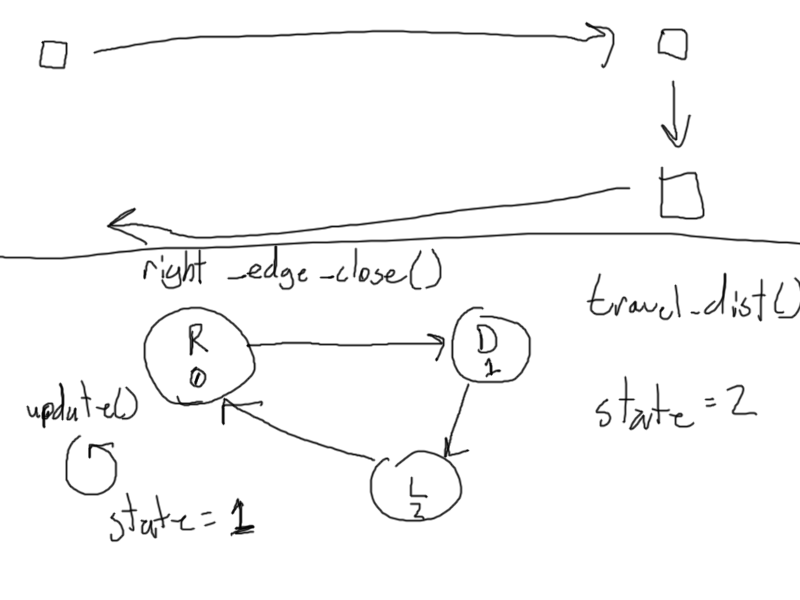 right_edge_close()
travel_dist()
R
0
D
1
update()
state = 2
L
2
state = 1